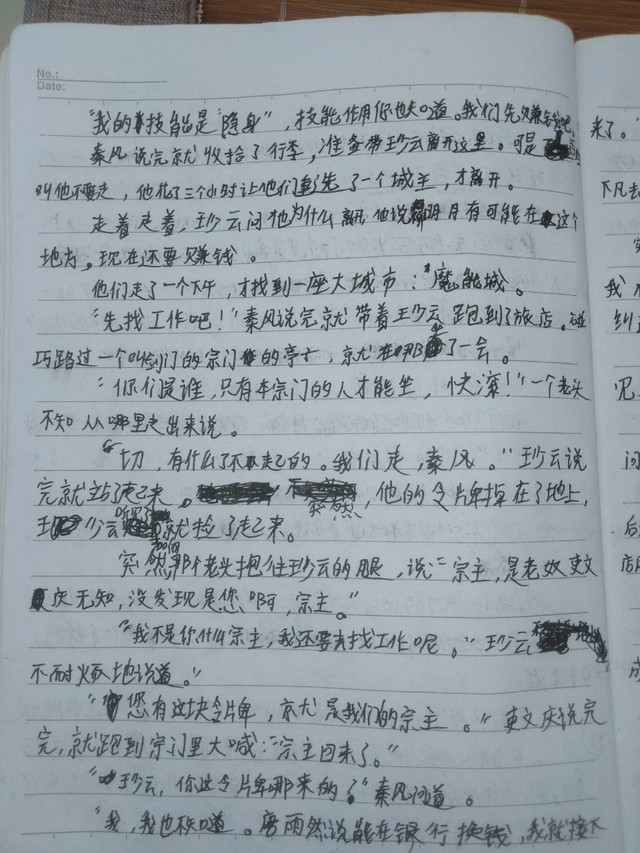 No.:
Date:
"我的技能是"隐身"，技能作用你也知道。我们先只赚钱吧。
秦风说完就收拾了行李，准备带玅云离开这里。可是
叫他不要走，他花了三个小时让他们先了一个城主，才离开。
走着走着，玅云问他为什么离，他说明月有可能在这个
地方，现在还要赚钱。
他们走了一个下午，才找到一座大城市："魔能城。
"先找工作吧！"秦风说完就带着玅云跑到了旅店。碰
巧路过一个叫剑门的宗门的亭子，就在那坐了一会。
"你们是谁，只有本宗门的人才能坐，快滚！"一个老头
不知从哪里走出来说。
"切，有什么了不起的。我们走，秦风。"玅云说
完就站了起来。突然，他的令牌掉在了地上，
玅云就捡了起来。
突然那个老头抱住玅云的腿，说："宗主，是老奴吏文
庆无知，没发现是您啊，宗主。"
"我不是你什么宗主，我还要去找工作呢。"玅云
不耐烦地说道。"
"您有这块令牌，就是我们的宗主。"吏文庆说完
完，就跑到宗门里大喊："宗主回来了。"
"玅云，你这令牌哪来的？"秦风问道。
"我，我也不知道。唐雨然说能在银行换钱，我就接下
来了。"
下凡去
我
纠
见
问
后
店
成